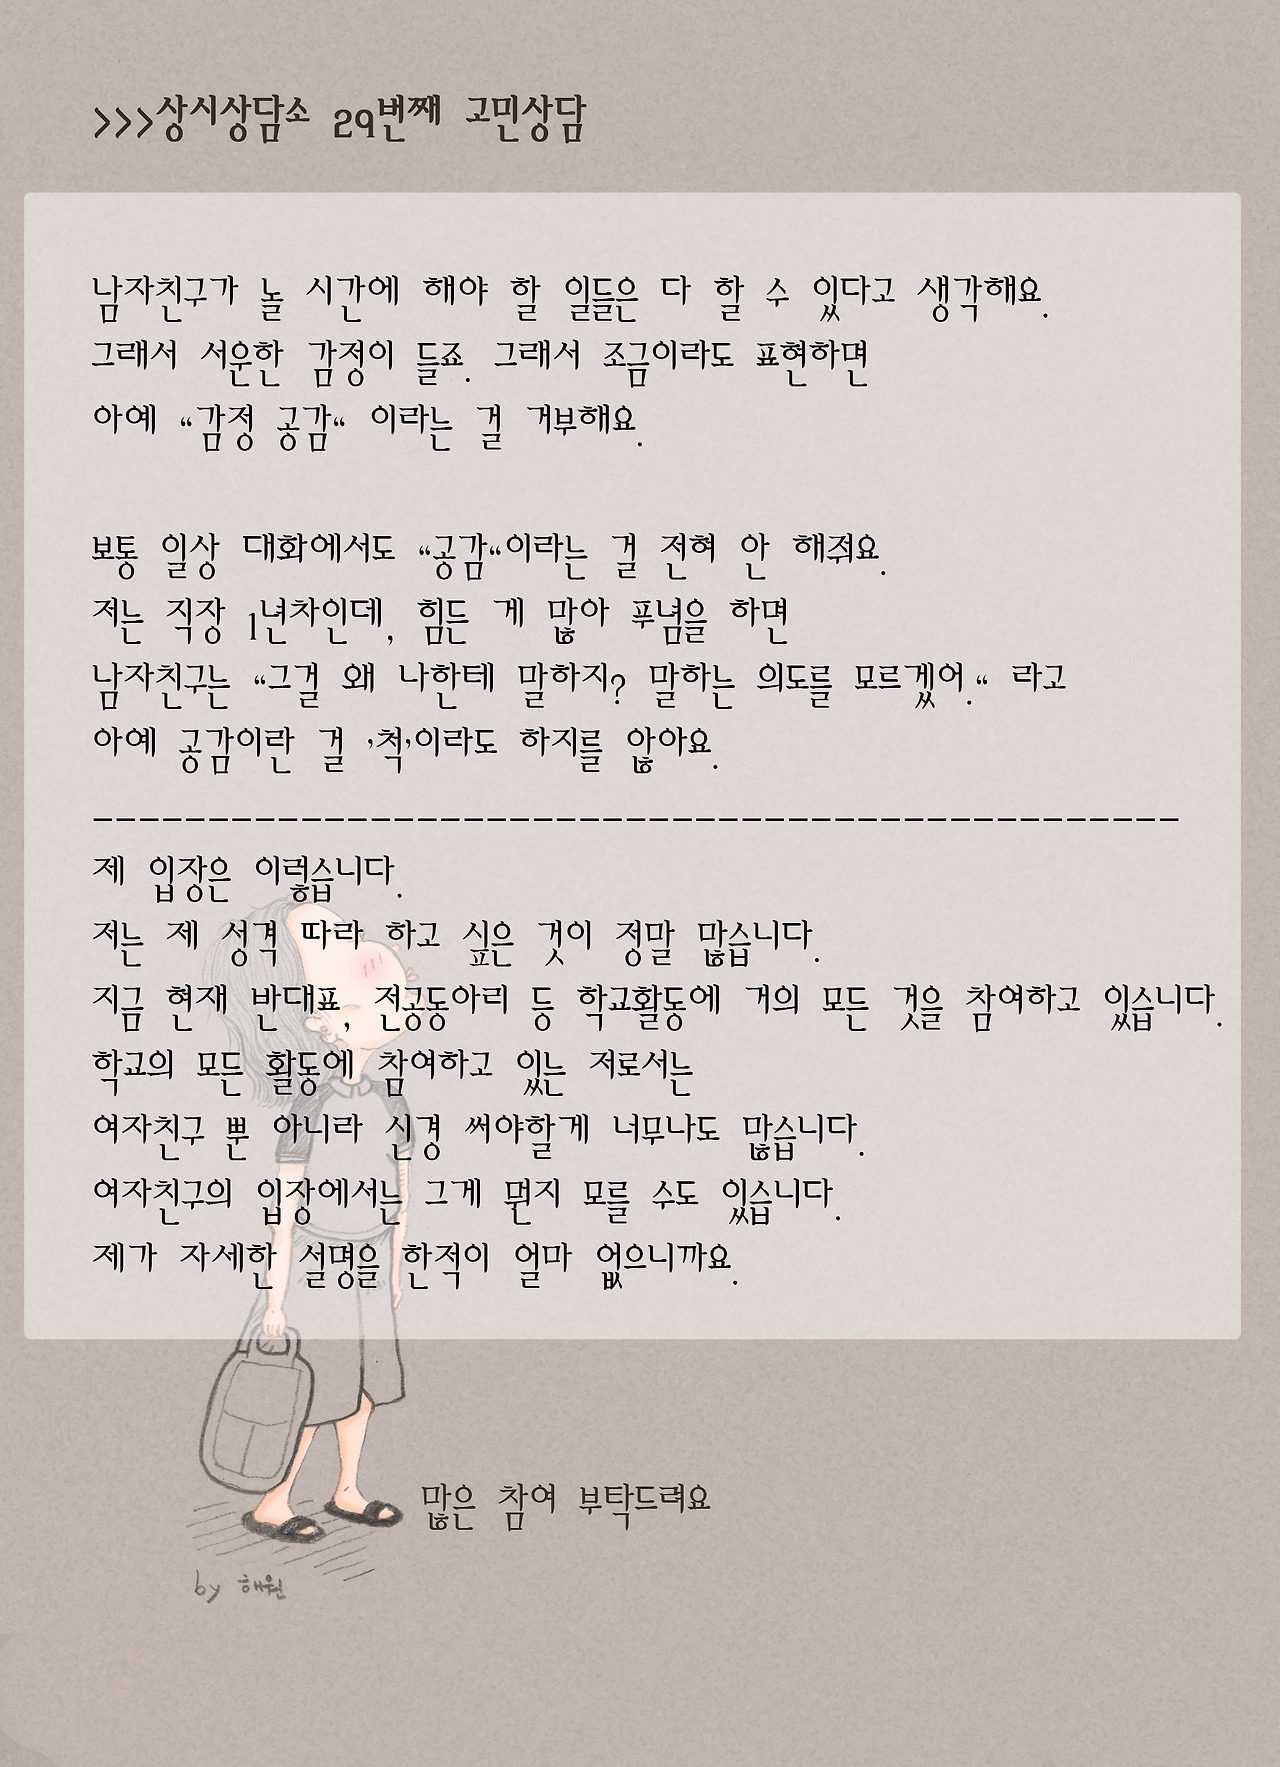 >>>상시상담소 29번째 고민상담
남자친구가 놀 시간에 해야 할 일들은 다 할 수 있다고 생각해요.
그래서 서운한 감정이 들죠. 그래서 조금이라도 표현하면
아예 “감정 공감“ 이라는 걸 거부해요.
보통 일상 대화에서도 “공감“이라는 걸 전혀 안 해줘요.
저는 직장 1년차인데, 힘든 게 많아 푸념을 하면
남자친구는 “그걸 왜 나한테 말하지? 말하는 의도를 모르겠어.“ 라고
아예 공감이란 걸 ’척’이라도 하지를 않아요.
-----------------------------------------------
제 입장은 이렇습니다.
저는 제 성격 따라 하고 싶은 것이 정말 많습니다.
지금 현재 반대표, 전공동아리 등 학교활동에 거의 모든 것을 참여하고 있습니다.
학교의 모든 활동에 참여하고 있는 저로서는
여자친구 뿐 아니라 신경 써야할게 너무나도 많습니다.
여자친구의 입장에서는 그게 뭔지 모를 수도 있습니다.
제가 자세한 설명을 한적이 얼마 없으니까요.
많은 참여 부탁드려요
by 해원